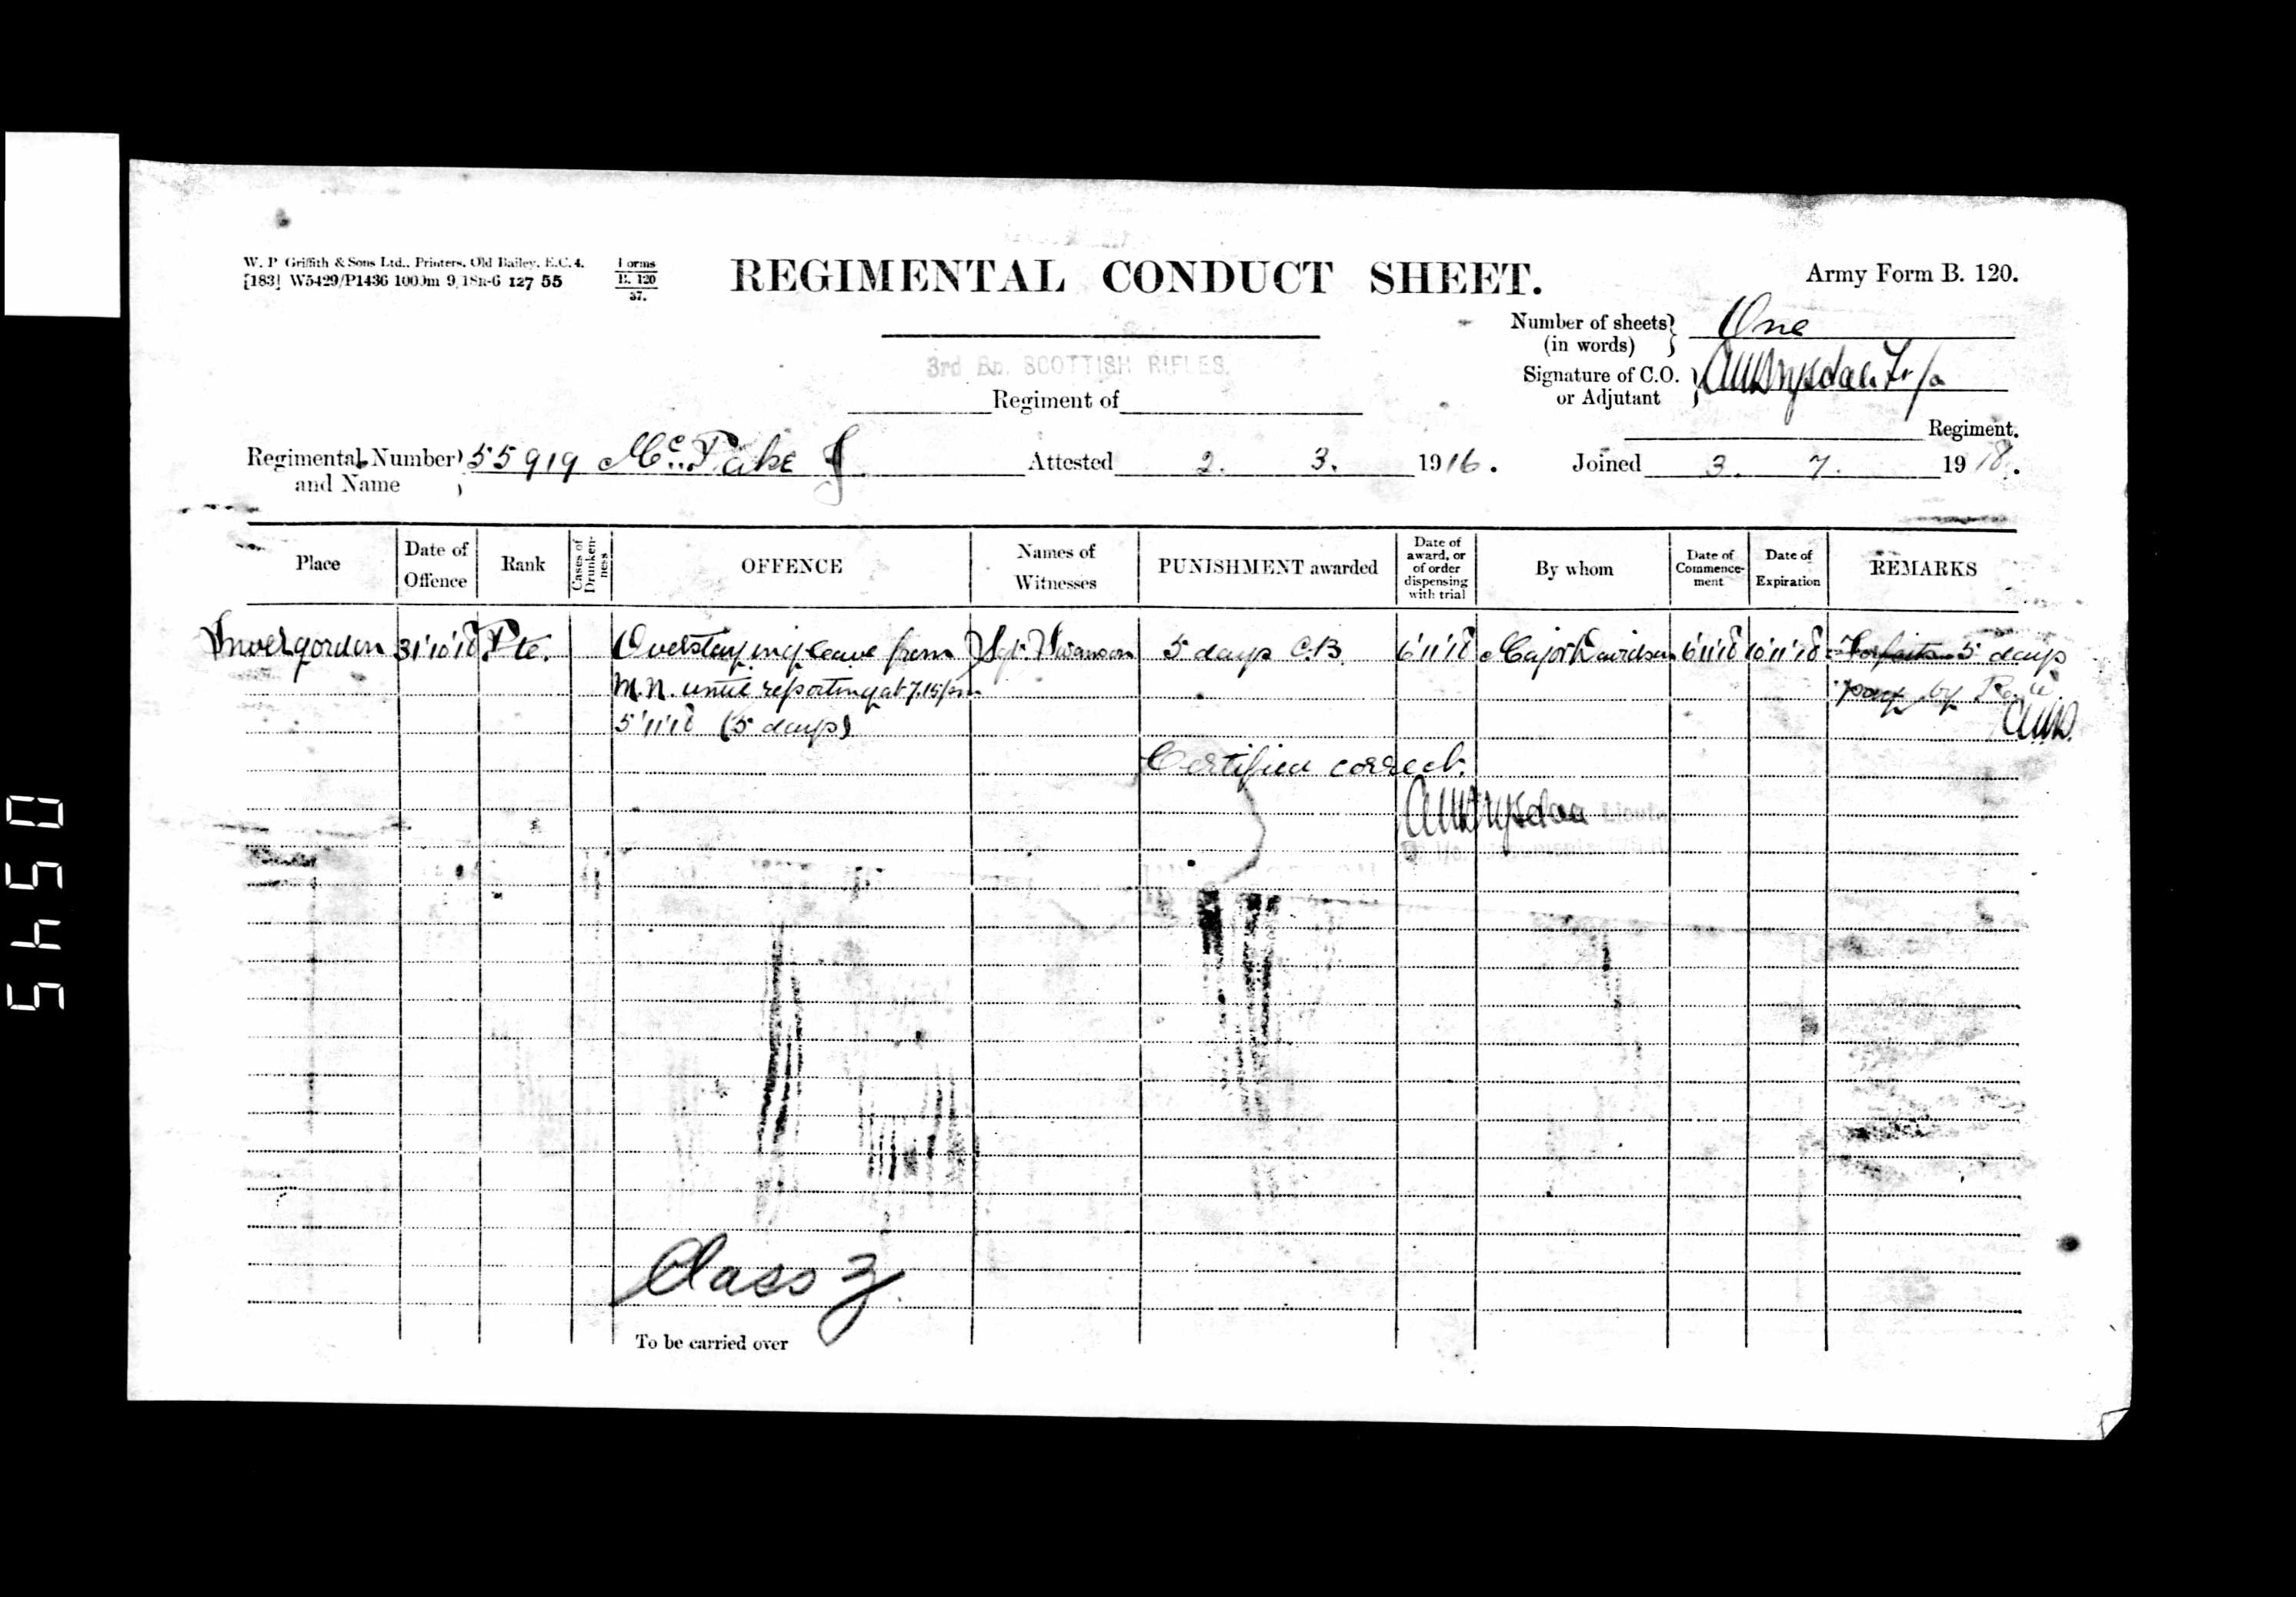 W. P. Griffith & Sons Ltd., Printers, Old Bailey, E.C.4.
[183] W5429/P1436 1000m 9/18 R-6 127 55
Forms
B. 120
37.
REGIMENTAL CONDUCT SHEET.
Army Form B. 120.
Number of sheets (in words) One
3rd Bn. SCOTTISH RIFLES.
Signature of C.O. or Adjutant AWDrysdale Lt/a
Regiment of
Regiment.
Regimental Number and Name 55919 McPake J. Attested 2. 3. 1916. Joined 3. 7. 1918.
Place
Date of Offence
Rank
Cases of Drunkenness
OFFENCE
Names of Witnesses
PUNISHMENT awarded
Date of award, or of order dispensing with trial
By whom
Date of Commencement
Date of Expiration
REMARKS
Invergordon 31'10'18 Pte. Overstaying leave from Sgt. Swanson 5 days C.B. 6'11'18 Major Davidson 6'11'18 10'11'18 Forfeits 5 days
M.N. until reporting at 7.15 pm pay by R.W.
5'11'18 (5 days) AWD.
Certified correct.
AWDrysdale Lieut.
Class Z.
To be carried over
0545